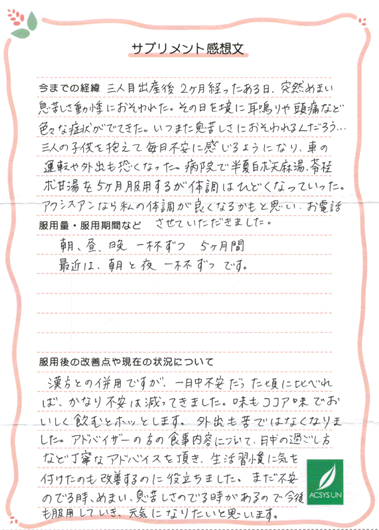 サプリメント感想文
今までの経緯 三人目出産後2ヶ月経ったある日、突然めまい
息苦さ動悸におそわれた。その日を境に耳鳴りや頭痛など
色々な症状がでてきた。いつまた息苦しさにおそわれるんだろう…
三人の子供を抱えて毎日不安に感じるようになり、車の
運転や外出も恐くなった。病院で半夏白朮天麻湯、苓桂
朮甘湯を5ヶ月服用するが体調はひどくなっていった。
アクシスアンなら私の体調が良くなるかもと思い、お電話
服用量・服用期間など させていただきました。
朝、昼、晩 一杯ずつ 5ヶ月間
最近は、朝と夜 一杯ずつです。
服用後の改善点や現在の状況について
漢方との併用ですが、一日中不安だった頃に比べれ
ば、かなり不安は減ってきました。味もココア味でお
いしく飲むとホッとします。外出も苦ではなくなりま
した。アドバイザーの方の食事内容について、日中の過ごし方
など丁寧なアドバイスを頂き、生活習慣に気を
付けたのも改善するのに役立ちました。まだ不安
のでる時、めまい、息苦しさのでる時があるので今後
も服用していき、元気になりたいと思います。
ACSYSUN